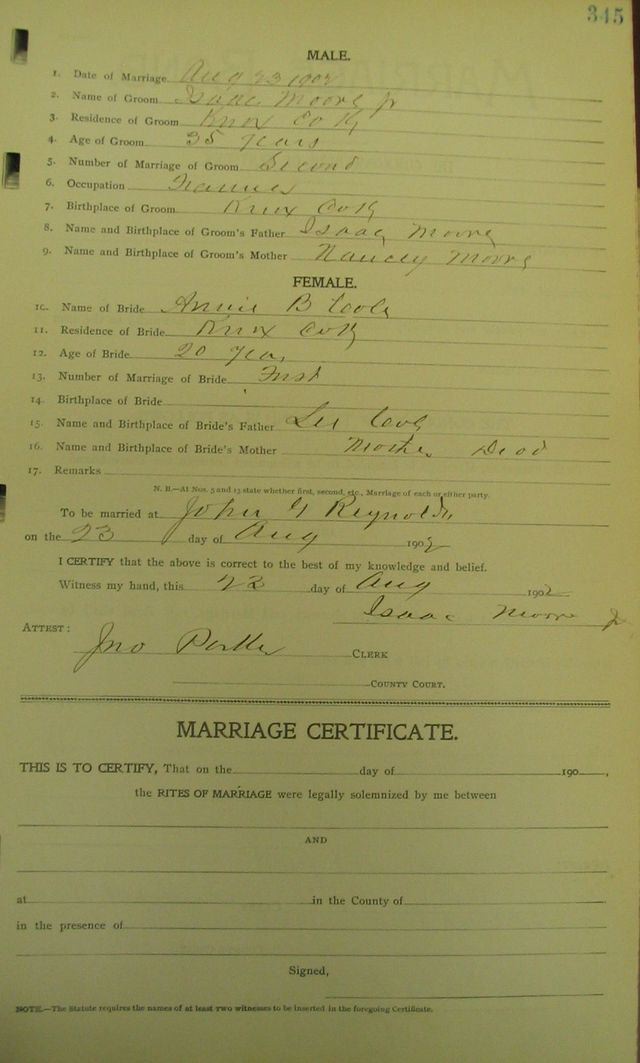 345
MALE.
1. Date of Marriage Aug 23 1902
2. Name of Groom Isaac Moore Jr
3. Residence of Groom Knox Co Ky
4. Age of Groom 35 years
5. Number of Marriage of Groom Second
6. Occupation
7. Birthplace of Groom Knox Co Ky
8. Name and Birthplace of Groom's Father Isaac Moore
9. Name and Birthplace of Groom's Mother Nancy Moore
FEMALE.
10. Name of Bride Annie B Cole
11. Residence of Bride Knox Co Ky
12. Age of Bride 20 years
13. Number of Marriage of Bride First
14. Birthplace of Bride
15. Name and Birthplace of Bride's Father Lee
16. Name and Birthplace of Bride's Mother Mother Dead
17. Remarks
N. B.—At Nos. 5 and 13 state whether first, second, etc., Marriage of each or either party.
To be married at John G Reynolds
on the 23 day of Aug 1902
I CERTIFY that the above is correct to the best of my knowledge and belief.
Witness my hand, this 23 day of Aug 1902
Isaac Moore Jr
ATTEST: Jno Parker CLERK
COUNTY COURT.
MARRIAGE CERTIFICATE.
THIS IS TO CERTIFY, That on the day of 190 ,
the RITES OF MARRIAGE were legally solemnized by me between
AND
at in the County of
in the presence of
Signed,
NOTE.—The Statute requires the names of at least two witnesses to be inserted in the foregoing Certificate.